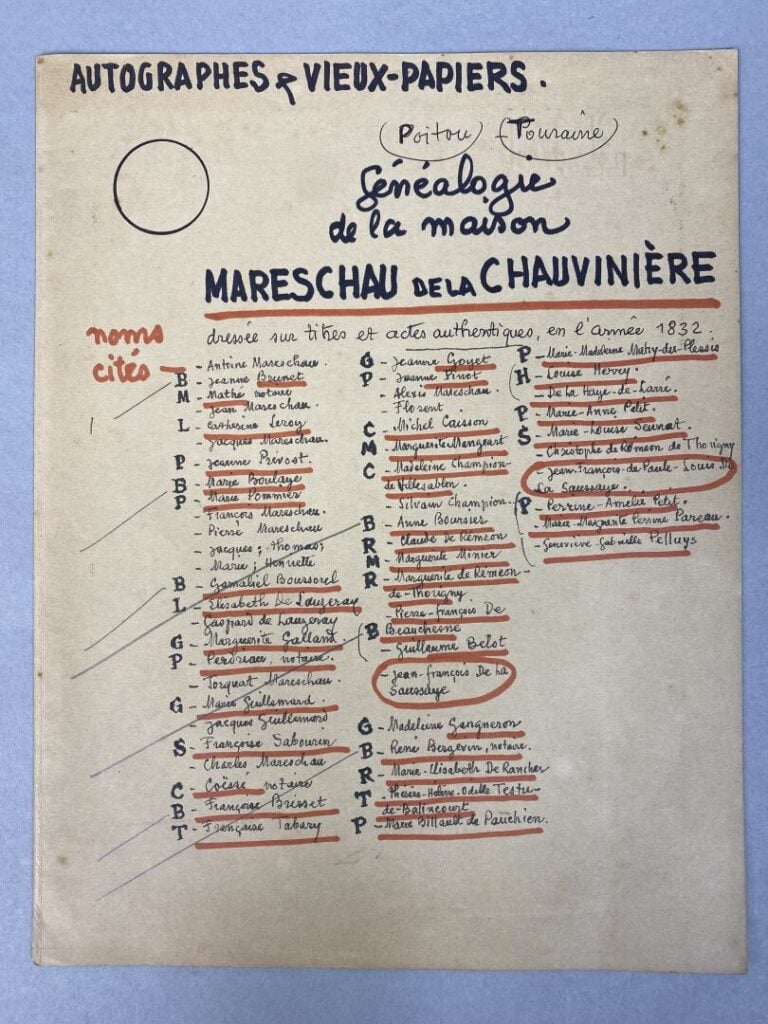 AUTOGRAPHES & VIEUX-PAPIERS.
(Poitou) (Touraine)
Généalogie
de la maison
MARESCHAU DE LA CHAUVINIÈRE
dressée sur titres et actes authentiques, en l'année 1832.
noms
cités
- Antoine Mareschau.
B - Jeanne Brunet
M - Mathé notaire
Jean Mareschau
L - Catherine Leroy
- Jacques Mareschau.
P - Jeanne Prévost.
B - Marye Boulaye
P - Marie Pommier
- François Mareschau.
- Pierre Mareschau
- Jacques; Thomas;
- Marie; Henriette
B - Gamaliel Boussorel
L - Elisabeth de Lauzeray
- Gaspard de Lauzeray
G - Marguerite Galland.
P - Perdriau, notaire.
- Torquat Mareschau.
G - Marie Guillemard.
- Jacques Guillemard
S - Françoise Sabourin
- Charles Mareschau
C - Coëssé notaire
B - Françoise Brisset
T - Françoise Tabary
G - Jeanne Goyet
P - Jeanne Pinot
- Alexis Mareschau
- Florent
C - Michel Causson
M - Marguerite Mangeart
C - Madeleine Champion-
de Villesablon.
- Silvain Champion.
B - Anne Boursier
R - Claude de Rémeon
M - Marguerite Minier
R - Marguerite de Rémeon-
de-Thorigny.
- Pierre-François De
B Beauchesne
- Guillaume Belot
- Jean-François De La
Saussaye
G - Madeleine Gangneron
B - René Bergevin, notaire.
R - Marie-Elisabeth De Rancher
T - Thérèse-Hélène-Odille Testu-
de-Balincourt
P - Marie Billault de Pauchien.
P - Marie-Madeleine Mahy-du-Plessis
H - Louise Hervey
- De La Haye-de-Larré.
P - Marie-Anne Petit.
S - Marie-Louise
- Christophe de Rémeon de Thorigny
- Jean-François-de-Paule-Louis De
La Saussaye.
P - Perrine-Amélie Petit.
- Marie-Marguerite Perrine Pareau.
- Geneviève Gabrielle Pelluys